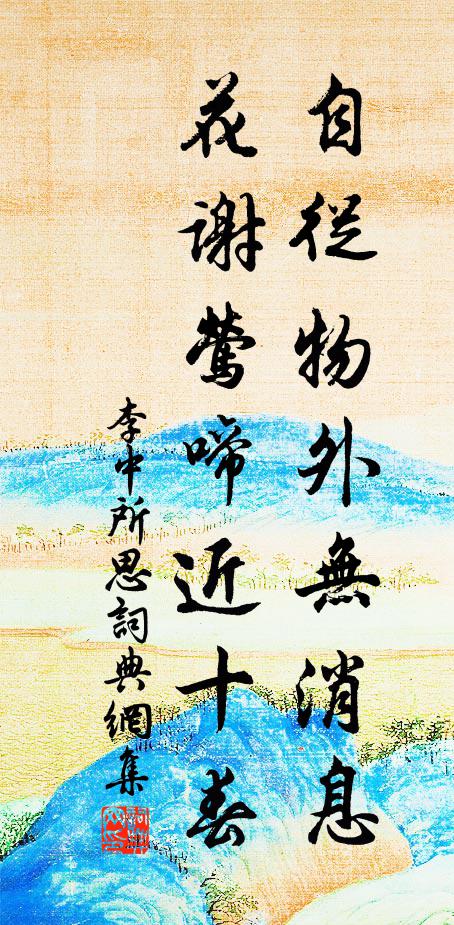 自從物外無消息
花謝鶯啼近十春
李中所思詞典網集